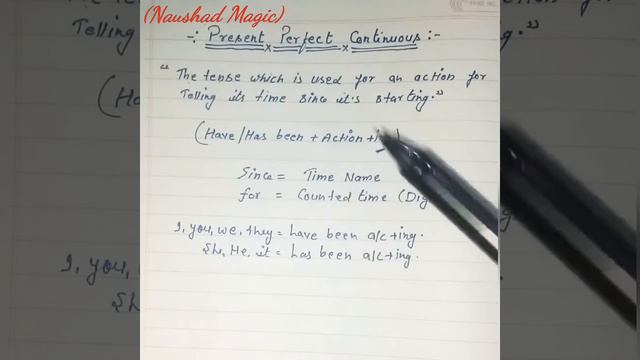 (Naushad Magic)
-: Present Perfect Continuous :-
" The tense which is used for an action for
Telling its time since it's starting."
(Have/Has been + Action +
Since = Time Name
for = Counted time (Dig
I, you, we, they = have been a/c +ing.
She, He, it = has been a/c +ing.